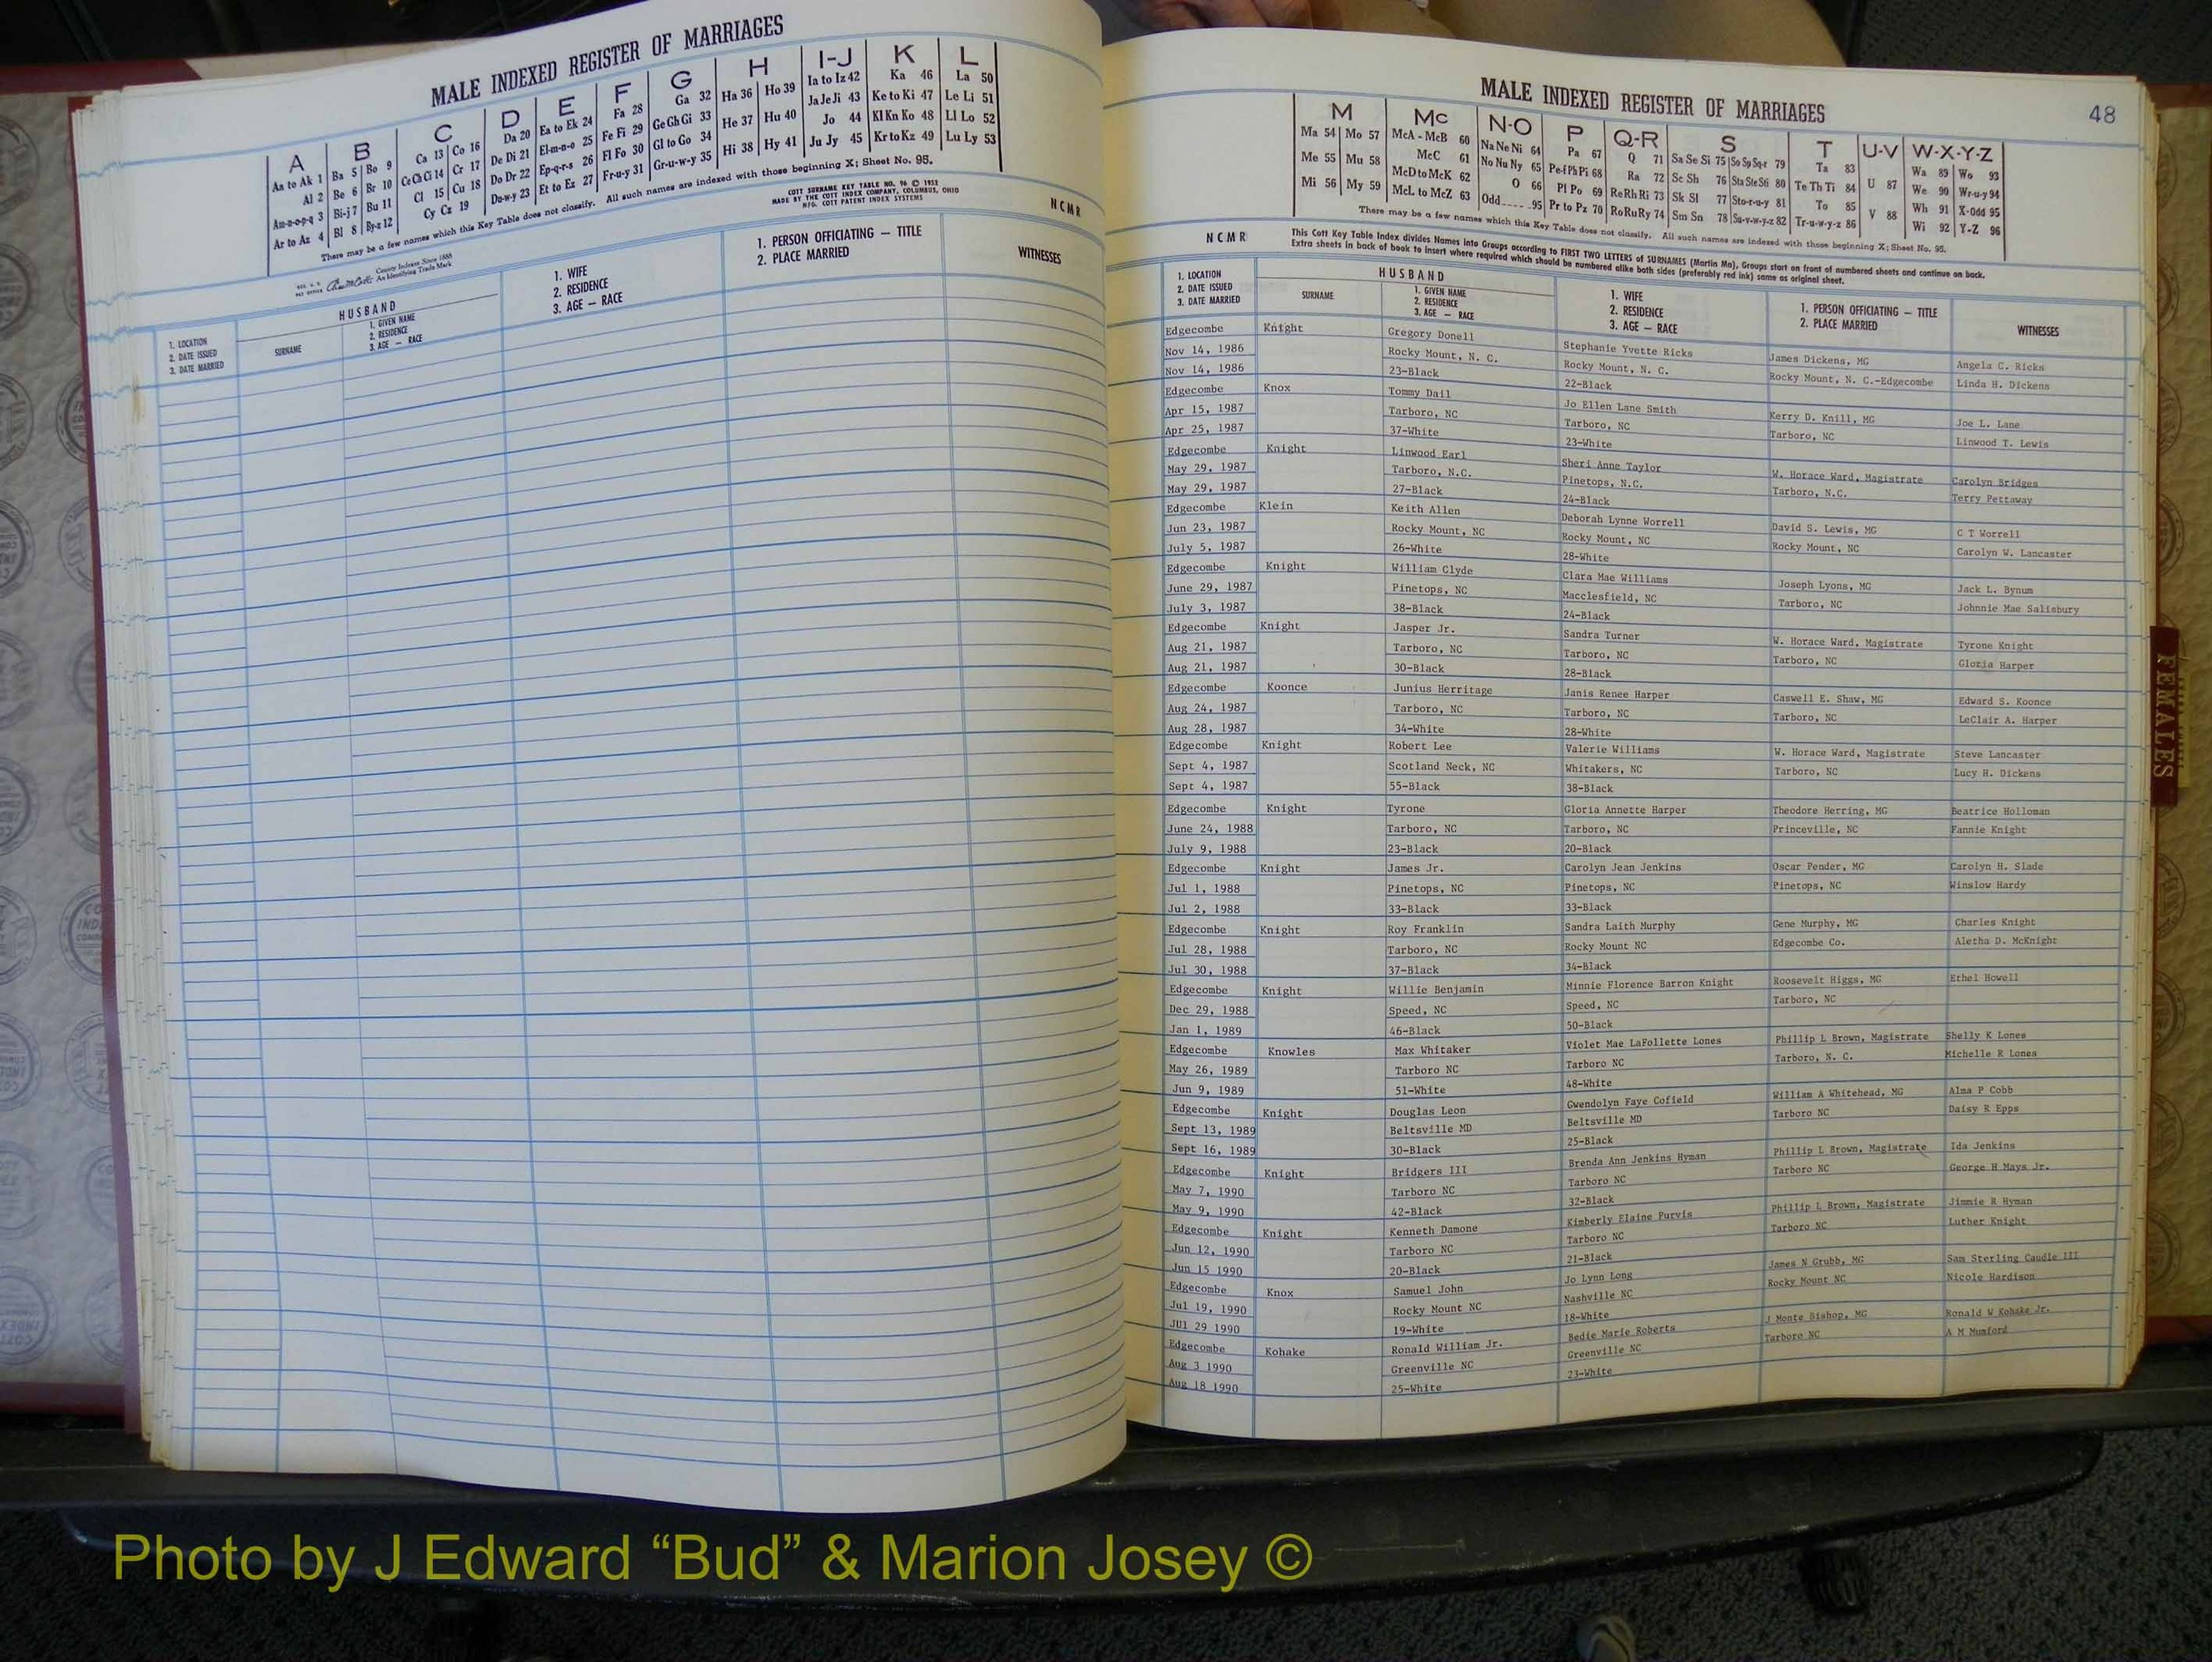 MALE INDEXED REGISTER OF MARRIAGES
A B C D E F G H I-J K L
Aa to Ak 1 Ba 5 Bo 9 Ca 13 Co 16 Da 20 Ea to Ek 24 Fa 28 Ga 32 Ha 36 Ho 39 Ia to Iz 42 Ka 46 La 50
Al 2 Be 6 Br 10 Ce Ch Ci 14 Cr 17 De Di 21 El-m-n-o 25 Fe Fi 29 Ge Gh Gi 33 He 37 Hu 40 Ja Je Ji 43 Ke to Ki 47 Le Li 51
Am-n-o-p-q 3 Bi-j 7 Bu 11 Cl 15 Cu 18 Do Dr 22 Ep-q-r-s 26 Fl Fo 30 Gl to Go 34 Hi 38 Hy 41 Jo 44 Kl Kn Ko 48 Ll Lo 52
Ar to Az 4 Bl 8 By-z 12 Cy Cz 19 Du-w-y 23 Et to Ez 27 Fr-u-y 31 Gr-u-w-y 35 Ju Jy 45 Kr to Kz 49 Lu Ly 53
There may be a few names which this Key Table does not classify. All such names are indexed with those beginning X; Sheet No. 95.
County Indexes Since 1888
An Identifying Trade Mark
COTT SURNAME KEY TABLE NO. 96 © 1952
MADE BY THE COTT INDEX COMPANY, COLUMBUS, OHIO
MFG. COTT PATENT INDEX SYSTEMS
NCMR
1. LOCATION
2. DATE ISSUED
3. DATE MARRIED
HUSBAND
SURNAME
1. GIVEN NAME
2. RESIDENCE
3. AGE — RACE
1. WIFE
2. RESIDENCE
3. AGE — RACE
1. PERSON OFFICIATING — TITLE
2. PLACE MARRIED
WITNESSES
MALE INDEXED REGISTER OF MARRIAGES
48
M Mc N-O P Q-R S T U-V W-X-Y-Z
Ma 54 Mo 57 McA - McB 60 Na Ne Ni 64 Pa 67 Q 71 Sa Se Si 75 So Sp Sq-r 79 Ta 83 U 87 Wa 89 Wo 93
Me 55 Mu 58 McC 61 No Nu Ny 65 Pe-f Ph Pi 68 Ra 72 Sc Sh 76 Sta Ste Sti 80 Te Th Ti 84 V 88 We 90 Wr-u-y 94
Mi 56 My 59 McD to McK 62 O 66 Pl Po 69 Re Rh Ri 73 Sk Sl 77 Sto-r-u-y 81 To 85 Wh 91 X-Odd 95
McL to McZ 63 Odd 95 Pr to Pz 70 Ro Ru Ry 74 Sm Sn 78 Su-v-w-y-z 82 Tr-u-w-y-z 86 Wi 92 Y-Z 96
There may be a few names which this Key Table does not classify. All such names are indexed with those beginning X; Sheet No. 95.
NCMR
This Cott Key Table Index divides Names into Groups according to FIRST TWO LETTERS of SURNAMES (Martin Ma), Groups start on front of numbered sheets and continue on back.
Extra sheets in back of book to insert where required which should be numbered alike both sides (preferably red ink) same as original sheet.
1. LOCATION
2. DATE ISSUED
3. DATE MARRIED
HUSBAND
SURNAME
1. GIVEN NAME
2. RESIDENCE
3. AGE — RACE
1. WIFE
2. RESIDENCE
3. AGE — RACE
1. PERSON OFFICIATING — TITLE
2. PLACE MARRIED
WITNESSES
Edgecombe Knight Gregory Donell Stephanie Yvette Ricks James Dickens, MG Angela C. Ricks
Nov 14, 1986 Rocky Mount, N. C. Rocky Mount, N. C. Rocky Mount, N. C.-Edgecombe Linda H. Dickens
Nov 14, 1986 23-Black 22-Black
Edgecombe Knox Tommy Dail Jo Ellen Lane Smith Kerry D. Knill, MG Joe L. Lane
Apr 15, 1987 Tarboro, NC Tarboro, NC Tarboro, NC Linwood T. Lewis
Apr 25, 1987 37-White 23-White
Edgecombe Knight Linwood Earl Sheri Anne Taylor W. Horace Ward, Magistrate Carolyn Bridges
May 29, 1987 Tarboro, N.C. Pinetops, N.C. Tarboro, N.C. Terry Pettaway
May 29, 1987 27-Black 24-Black
Edgecombe Klein Keith Allen Deborah Lynne Worrell David S. Lewis, MG C T Worrell
Jun 23, 1987 Rocky Mount, NC Rocky Mount, NC Rocky Mount, NC Carolyn W. Lancaster
July 5, 1987 26-White 28-White
Edgecombe Knight William Clyde Clara Mae Williams Joseph Lyons, MG Jack L. Bynum
June 29, 1987 Pinetops, NC Macclesfield, NC Tarboro, NC Johnnie Mae Salisbury
July 3, 1987 38-Black 24-Black
Edgecombe Knight Jasper Jr. Sandra Turner W. Horace Ward, Magistrate Tyrone Knight
Aug 21, 1987 Tarboro, NC Tarboro, NC Tarboro, NC Gloria Harper
Aug 21, 1987 30-Black 28-Black
Edgecombe Koonce Junius Herritage Janis Renee Harper Caswell E. Shaw, MG Edward S. Koonce
Aug 24, 1987 Tarboro, NC Tarboro, NC Tarboro, NC LeClair A. Harper
Aug 28, 1987 34-White 28-White
Edgecombe Knight Robert Lee Valerie Williams W. Horace Ward, Magistrate Steve Lancaster
Sept 4, 1987 Scotland Neck, NC Whitakers, NC Tarboro, NC Lucy H. Dickens
Sept 4, 1987 55-Black 38-Black
Edgecombe Knight Tyrone Gloria Annette Harper Theodore Herring, MG Beatrice Holloman
June 24, 1988 Tarboro, NC Tarboro, NC Princeville, NC Fannie Knight
July 9, 1988 23-Black 20-Black
Edgecombe Knight James Jr. Carolyn Jean Jenkins Oscar Pender, MG Carolyn H. Slade
Jul 1, 1988 Pinetops, NC Pinetops, NC Pinetops, NC Winslow Hardy
Jul 2, 1988 33-Black 33-Black
Edgecombe Knight Roy Franklin Sandra Laith Murphy Gene Murphy, MG Charles Knight
Jul 28, 1988 Tarboro, NC Rocky Mount NC Edgecombe Co. Aletha D. McKnight
Jul 30, 1988 37-Black 34-Black
Edgecombe Knight Willie Benjamin Minnie Florence Barron Knight Roosevelt Higgs, MG Ethel Howell
Dec 29, 1988 Speed, NC Speed, NC Tarboro, NC
Jan 1, 1989 46-Black 50-Black
Edgecombe Knowles Max Whitaker Violet Mae LaFollette Lones Phillip L Brown, Magistrate Shelly K Lones
May 26, 1989 Tarboro NC Tarboro NC Tarboro, N. C. Michelle R Lones
Jun 9, 1989 51-White 48-White
Edgecombe Knight Douglas Leon Gwendolyn Faye Cofield William A Whitehead, MG Alma P Cobb
Sept 13, 1989 Beltsville MD Beltsville MD Tarboro NC Daisy R Epps
Sept 16, 1989 30-Black 25-Black
Edgecombe Knight Bridgers III Brenda Ann Jenkins Hyman Phillip L Brown, Magistrate Ida Jenkins
May 7, 1990 Tarboro NC Tarboro NC Tarboro NC George H Mays Jr.
May 9, 1990 42-Black 32-Black
Edgecombe Knight Kenneth Damone Kimberly Elaine Purvis Phillip L Brown, Magistrate Jimmie R Hyman
Jun 12, 1990 Tarboro NC Tarboro NC Tarboro NC Luther Knight
Jun 15 1990 20-Black 21-Black
Edgecombe Knox Samuel John Jo Lynn Long James N Grubb, MG Sam Sterling Caudle III
Jul 19, 1990 Rocky Mount NC Nashville NC Rocky Mount NC Nicole Hardison
JUl 29 1990 19-White 18-White
Edgecombe Kohake Ronald William Jr. Bedie Marie Roberts J Monte Bishop, MG Ronald W Kohake Jr.
Aug 3 1990 Greenville NC Greenville NC Tarboro NC A M Mumford
Aug 18 1990 25-White 23-White
FEMALES
Photo by J Edward “Bud” & Marion Josey ©